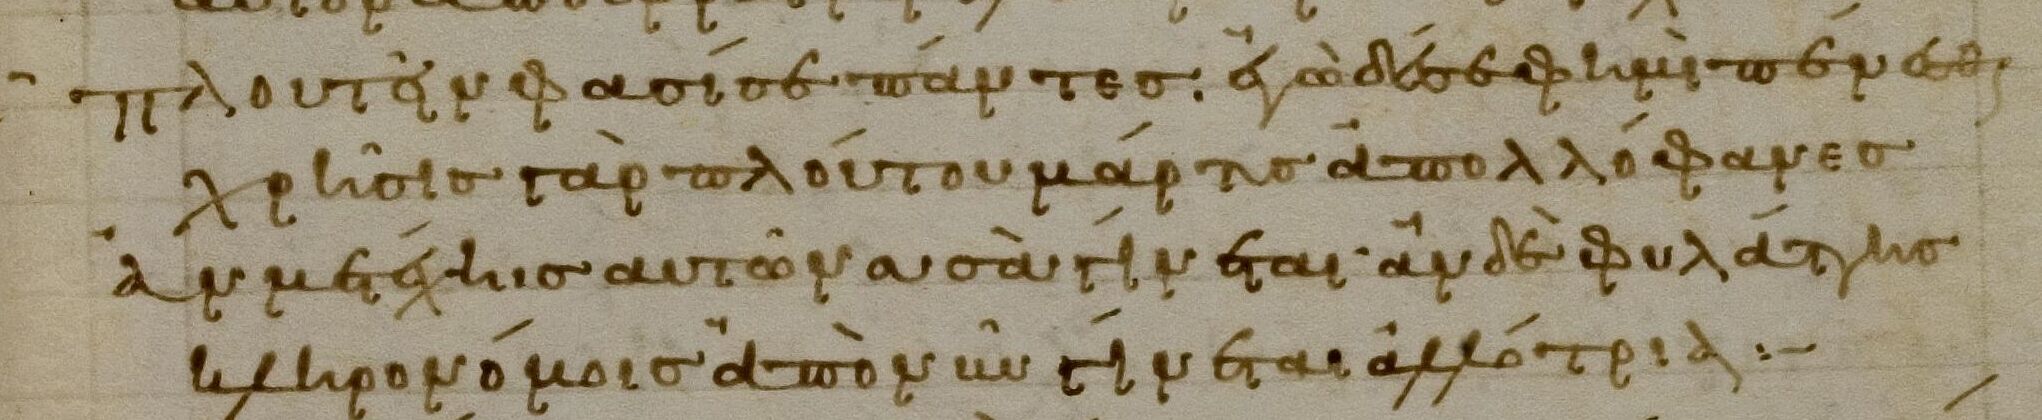 πλουτεῖν φασίσε πάντες· ἐγὼ δέ σε φημὶ πένεσθαι
χρῆσις γὰρ πλούτου μάρτυς ἀπολλόφανες
ἂν μετέχηις αυτῶν σὰ γίνεται· ἂν δὲ φυλάττηις
κληρονόμοις ἀπὸ νῦν γίνεται ἀλλότρια :-